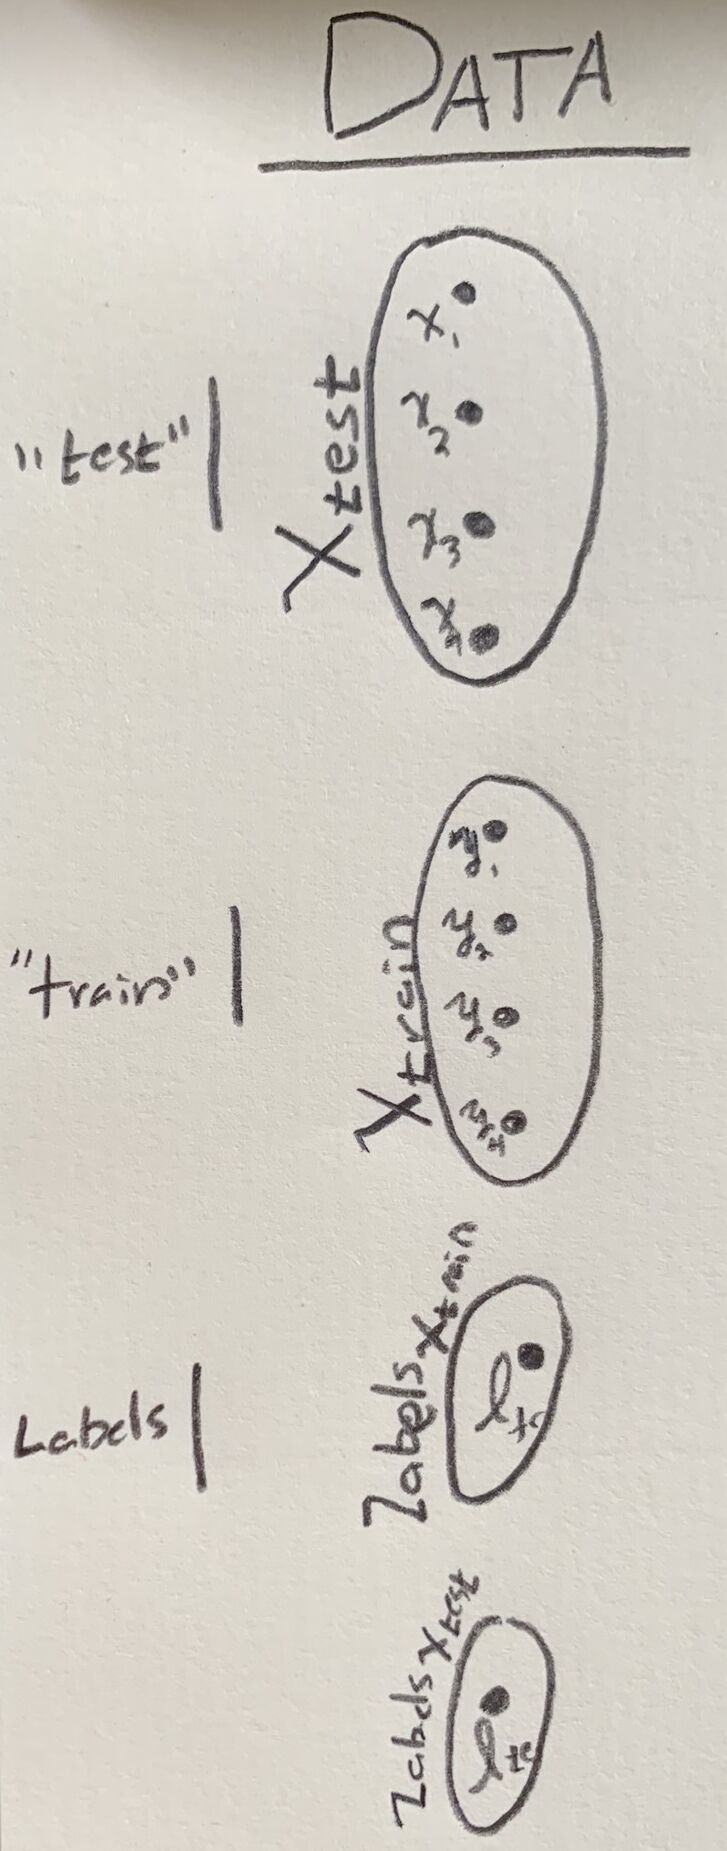 DATA
"test"
Xtest
x1
x2
x3
x4
"train"
Xtrain
y1
y2
y3
y4
Labels
LabelsXtrain
LabelsXtest
ℓte